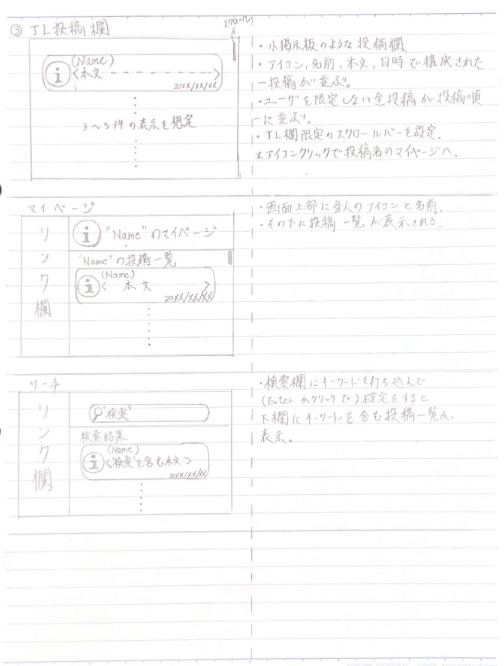 ③ TL投稿欄
スクロールバー
(Name)
i <本文 ---------->
20XX/XX/XX
3〜5件の表示を想定
・小掲示板のような投稿欄
・アイコン,名前,本文,日時で構成された
一投稿が並ぶ。
・ユーザを限定しない全投稿が投稿順
に並ぶ。
・TL欄限定のスクロールバーを設定。
*アイコンクリックで投稿者のマイページへ。
マイページ
リンク欄
i "Name"のマイページ
"Name"の投稿一覧
(Name)
i < 本文 >
20XX/XX/XX
・画面上部に当人のアイコンと名前。
・その下に投稿一覧が表示される。
サーチ
リンク欄
"検索"
検索結果
(Name)
i <"検索"を含む本文>
20XX/XX/XX
・検索欄にキーワードを打ち込んで
(Enter orクリックで)確定をすると
下欄にキーワードを含む投稿一覧が
表示。